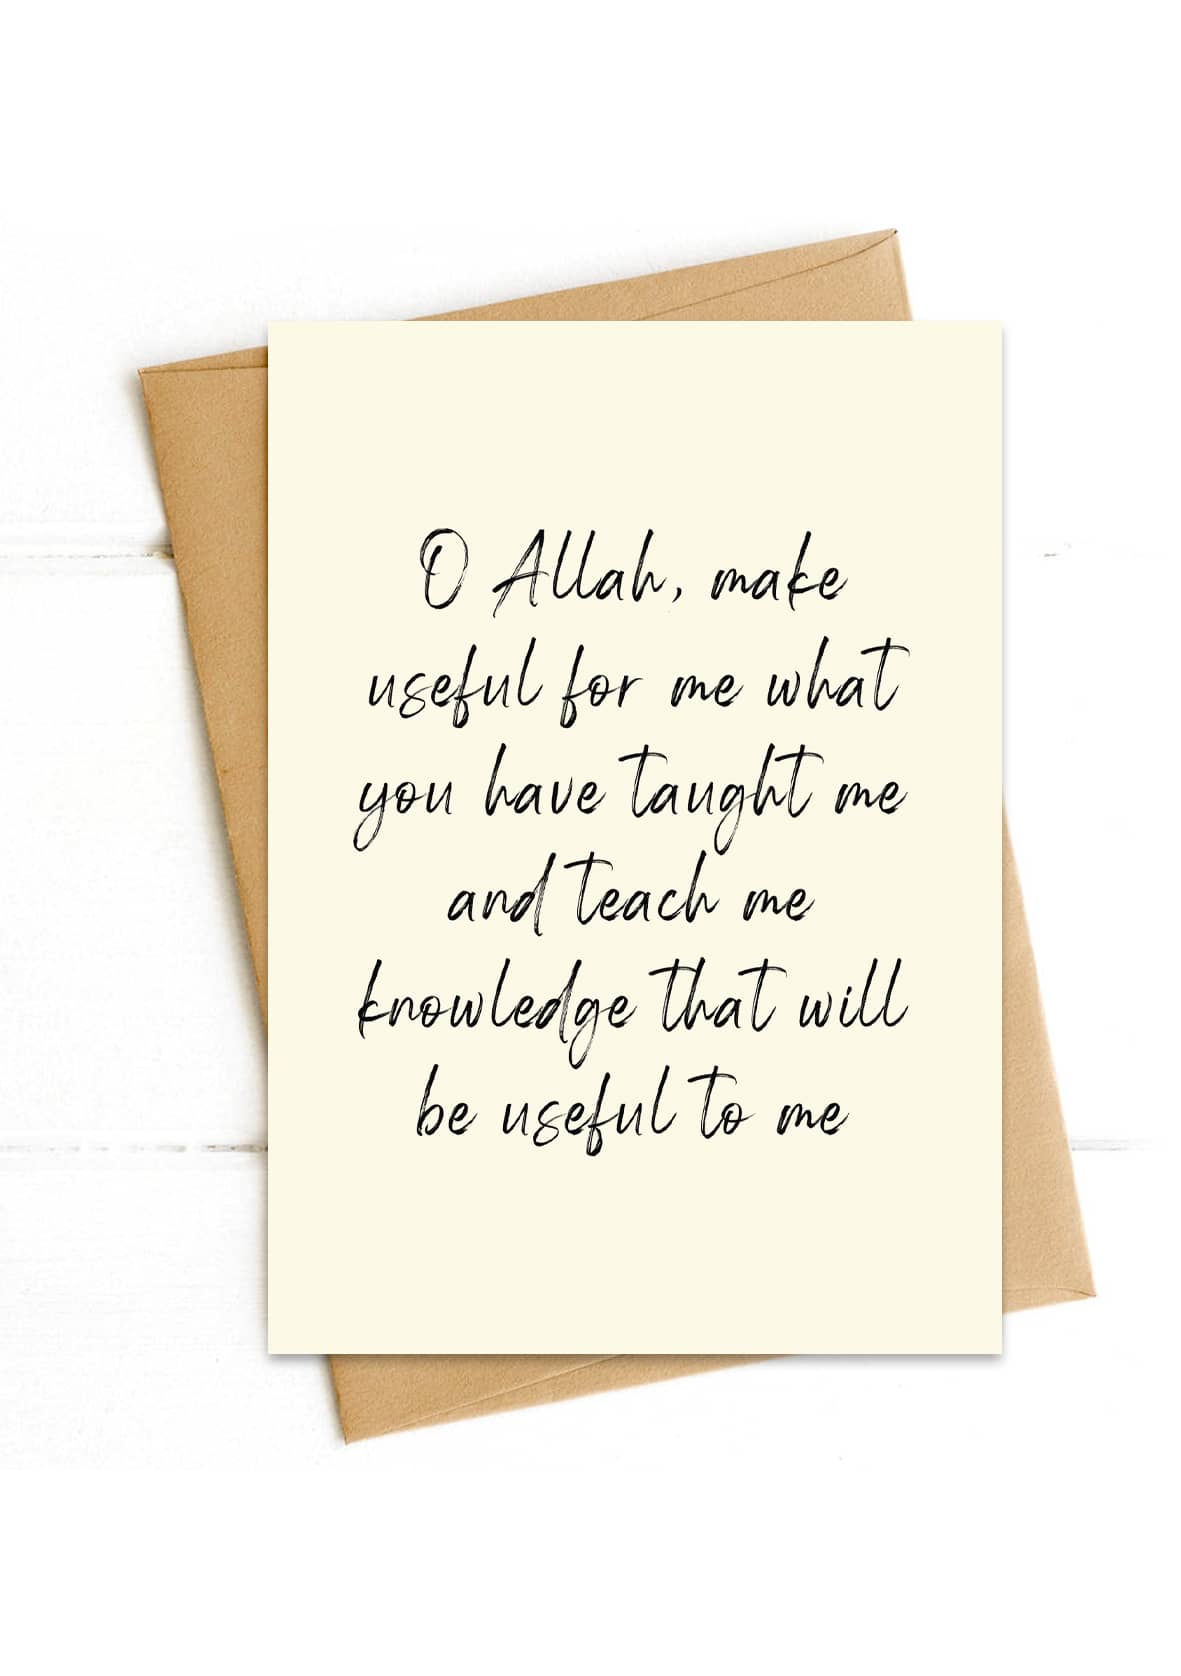 O Allah, make
useful for me what
you have taught me
and teach me
knowledge that will
be useful to me